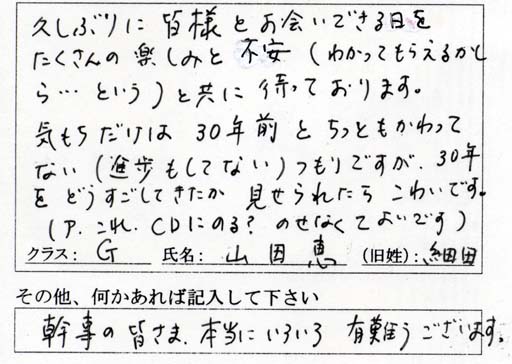 久しぶりに 皆様 と お会いできる日を
たくさんの 楽しみと 不安 (わかってもらえるかし
ら… という) と共に 待って おります。
気もちだけは 30年前 と ちっともかわって
ない (進歩もしてない) つもりですが、30年
を どうすごしてきたか 見せられたら こわいです。
(ア、これ、CDにのる? のせなくてよいです)
クラス: G 氏名: 山田 恵 (旧姓): 細田
その他、何かあれば記入して下さい
幹事の 皆さま、本当に いろいろ 有難うございます。